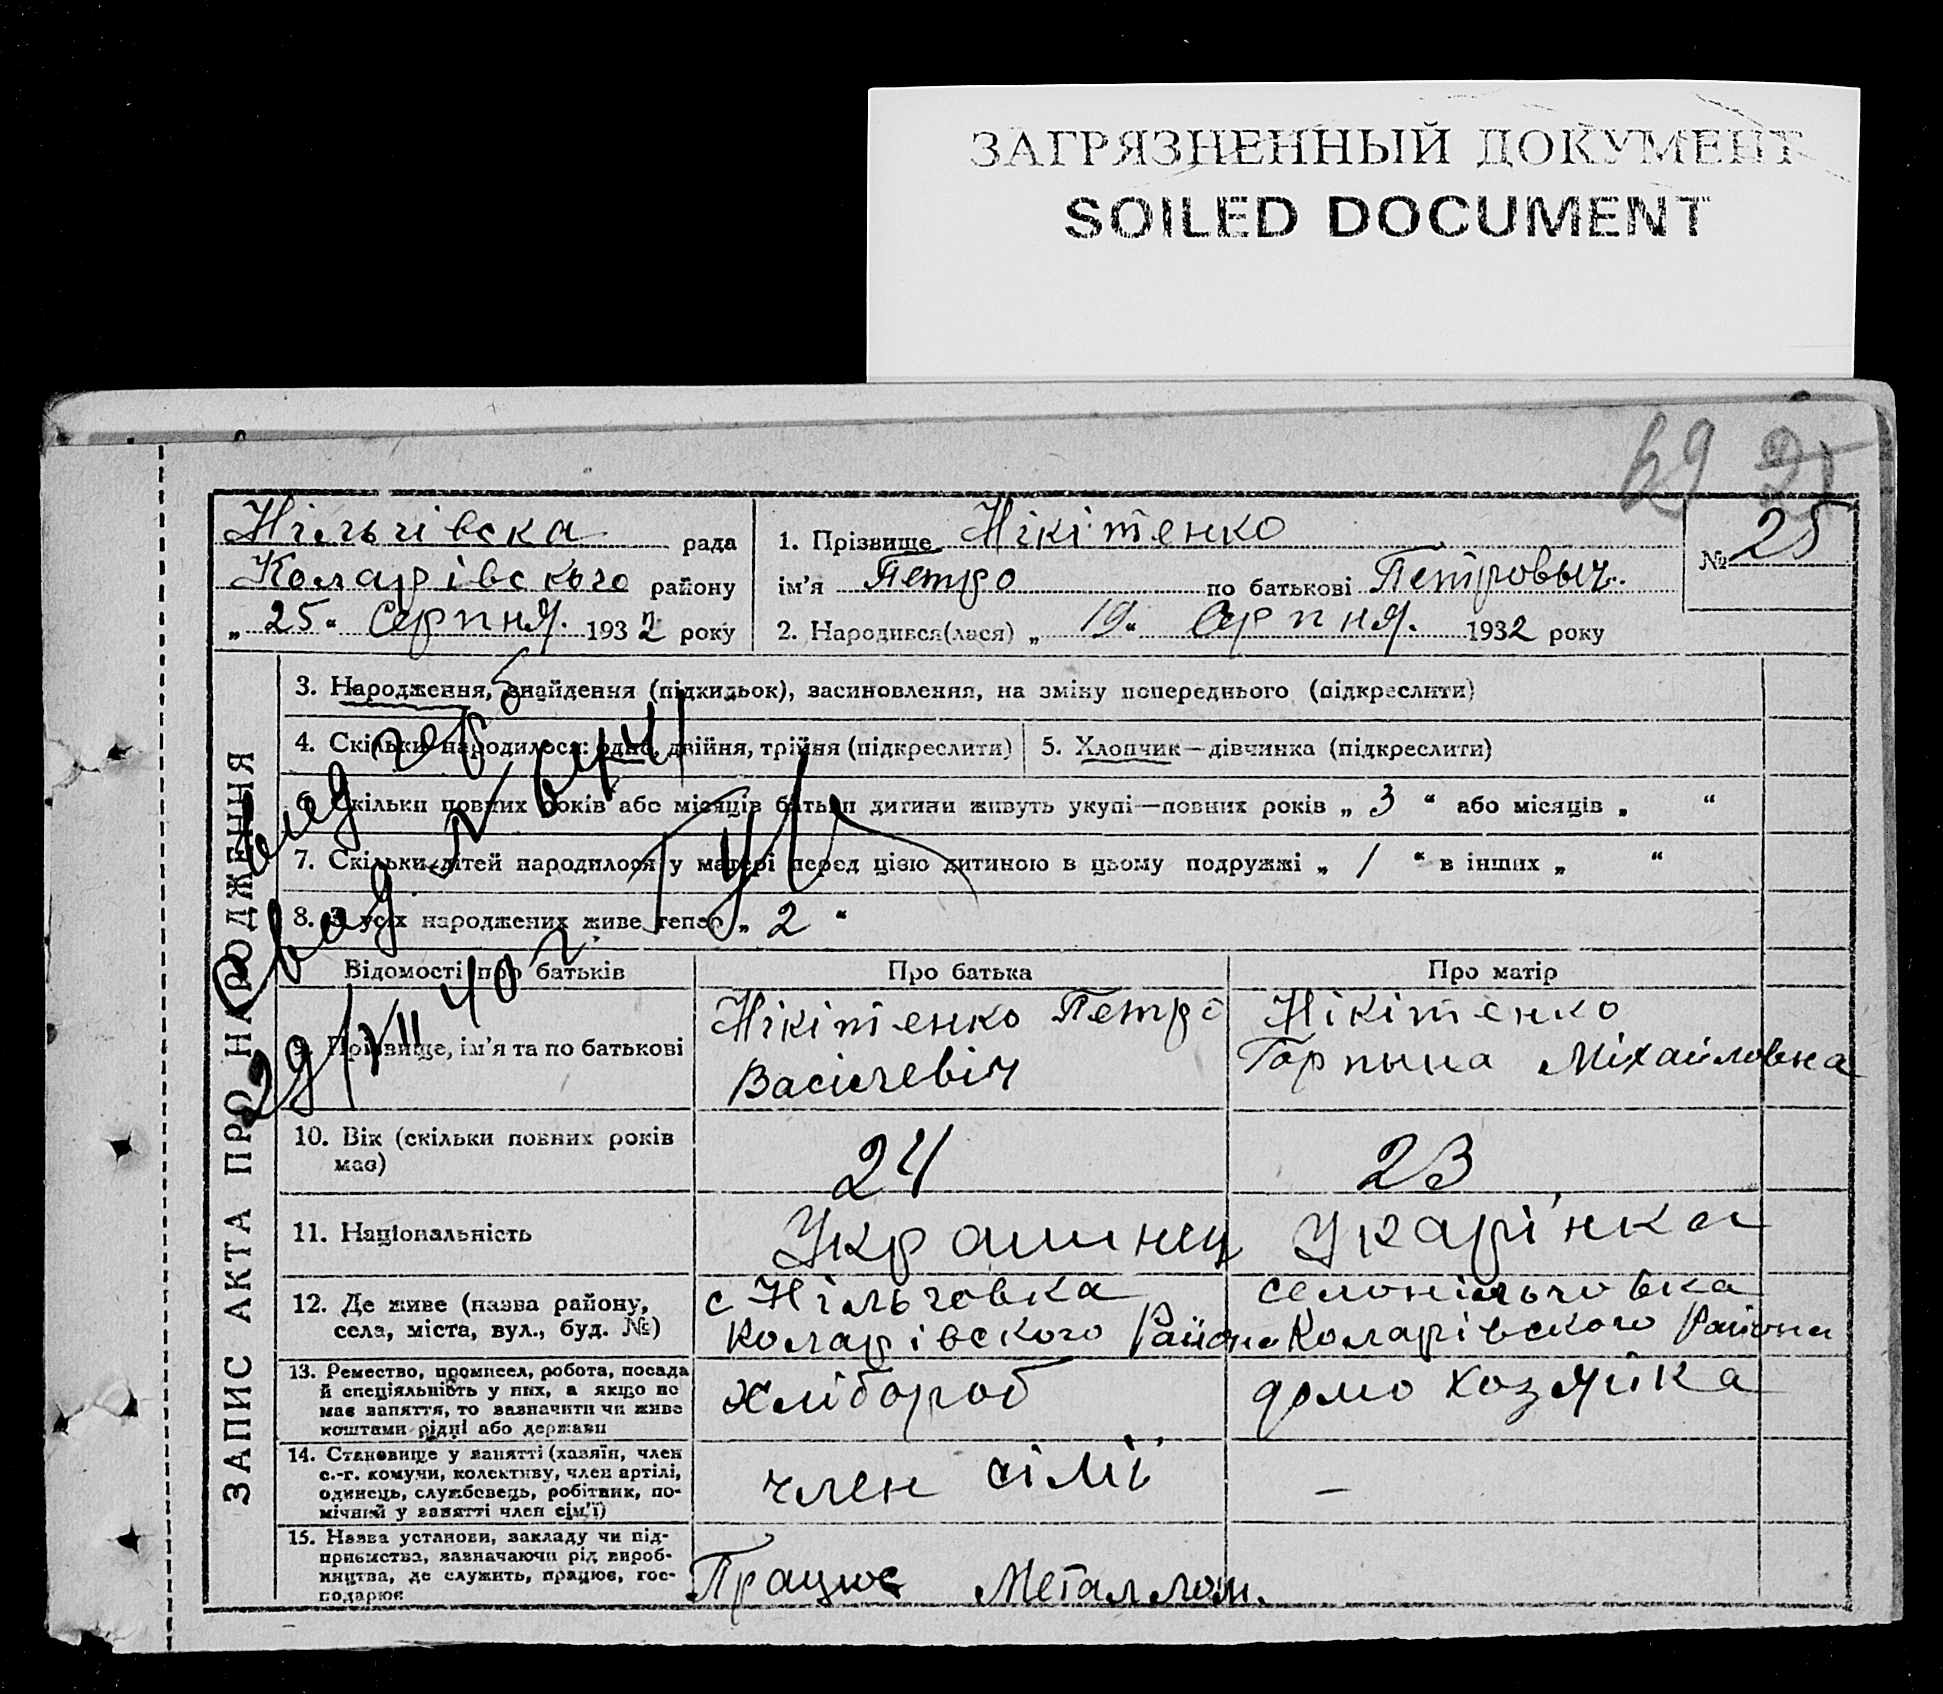 ЗАГРЯЗНЕННЫЙ ДОКУМЕНТ
SOILED DOCUMENT
69 25
Нільгівска рада
Коларівского району
„ 25 “ Серпня. 1932 року
1. Прізвище Нікітенко
ім'я Петро по батькові Петровыч.
2. Народився(лася) „ 19 “ Серпня. 1932 року
№ 25
ЗАПИС АКТА ПРО НАРОДЖЕННЯ
3. Народження, знайдення (підкидьок), засиновлення, на зміну попереднього (підкреслити)
4. Скільки народилося: одно, двійня, трійня (підкреслити)
5. Хлопчик—дівчинка (підкреслити)
6. Скільки повних років або місяців батьки дитини живуть укупі—повних років „ 3 “ або місяців „ “
7. Скільки дітей народилося у матері перед цією дитиною в цьому подружжі „ 1 “ в інших „ “
8. З усіх народжених живе тепер „ 2 “
29/VII 40 г.
Відомості про батьків
Про батька
Про матір
9. Прізвище, ім'я та по батькові
Нікітенко Петро
Васілевіч
Нікітенко
Горпына Міхайловна
10. Вік (скільки повних років
має)
24
23
11. Національність
Украинец
Украрінка
12. Де живе (назва району,
села, міста, вул., буд. №)
с Нільговка
Коларівского Района
село нільговка
Коларівского Района
13. Ремество, промисел, робота, посада
й спеціяльність у них, а якщо не
має заняття, то зазначити чи живе
коштами рідні або держави
хлібороб
домо хозяйка
14. Становище у занятті (хазяїн, член
с.-г. комуни, колективу, член артілі,
одинець, службовець, робітник, по-
мічний у занятті член сім'ї)
член сімї
—
15. Назва установи, закладу чи під-
приємства, зазначаючи рід вироб-
ництва, де служить, працює, гос-
подарює
Працює Металлом.